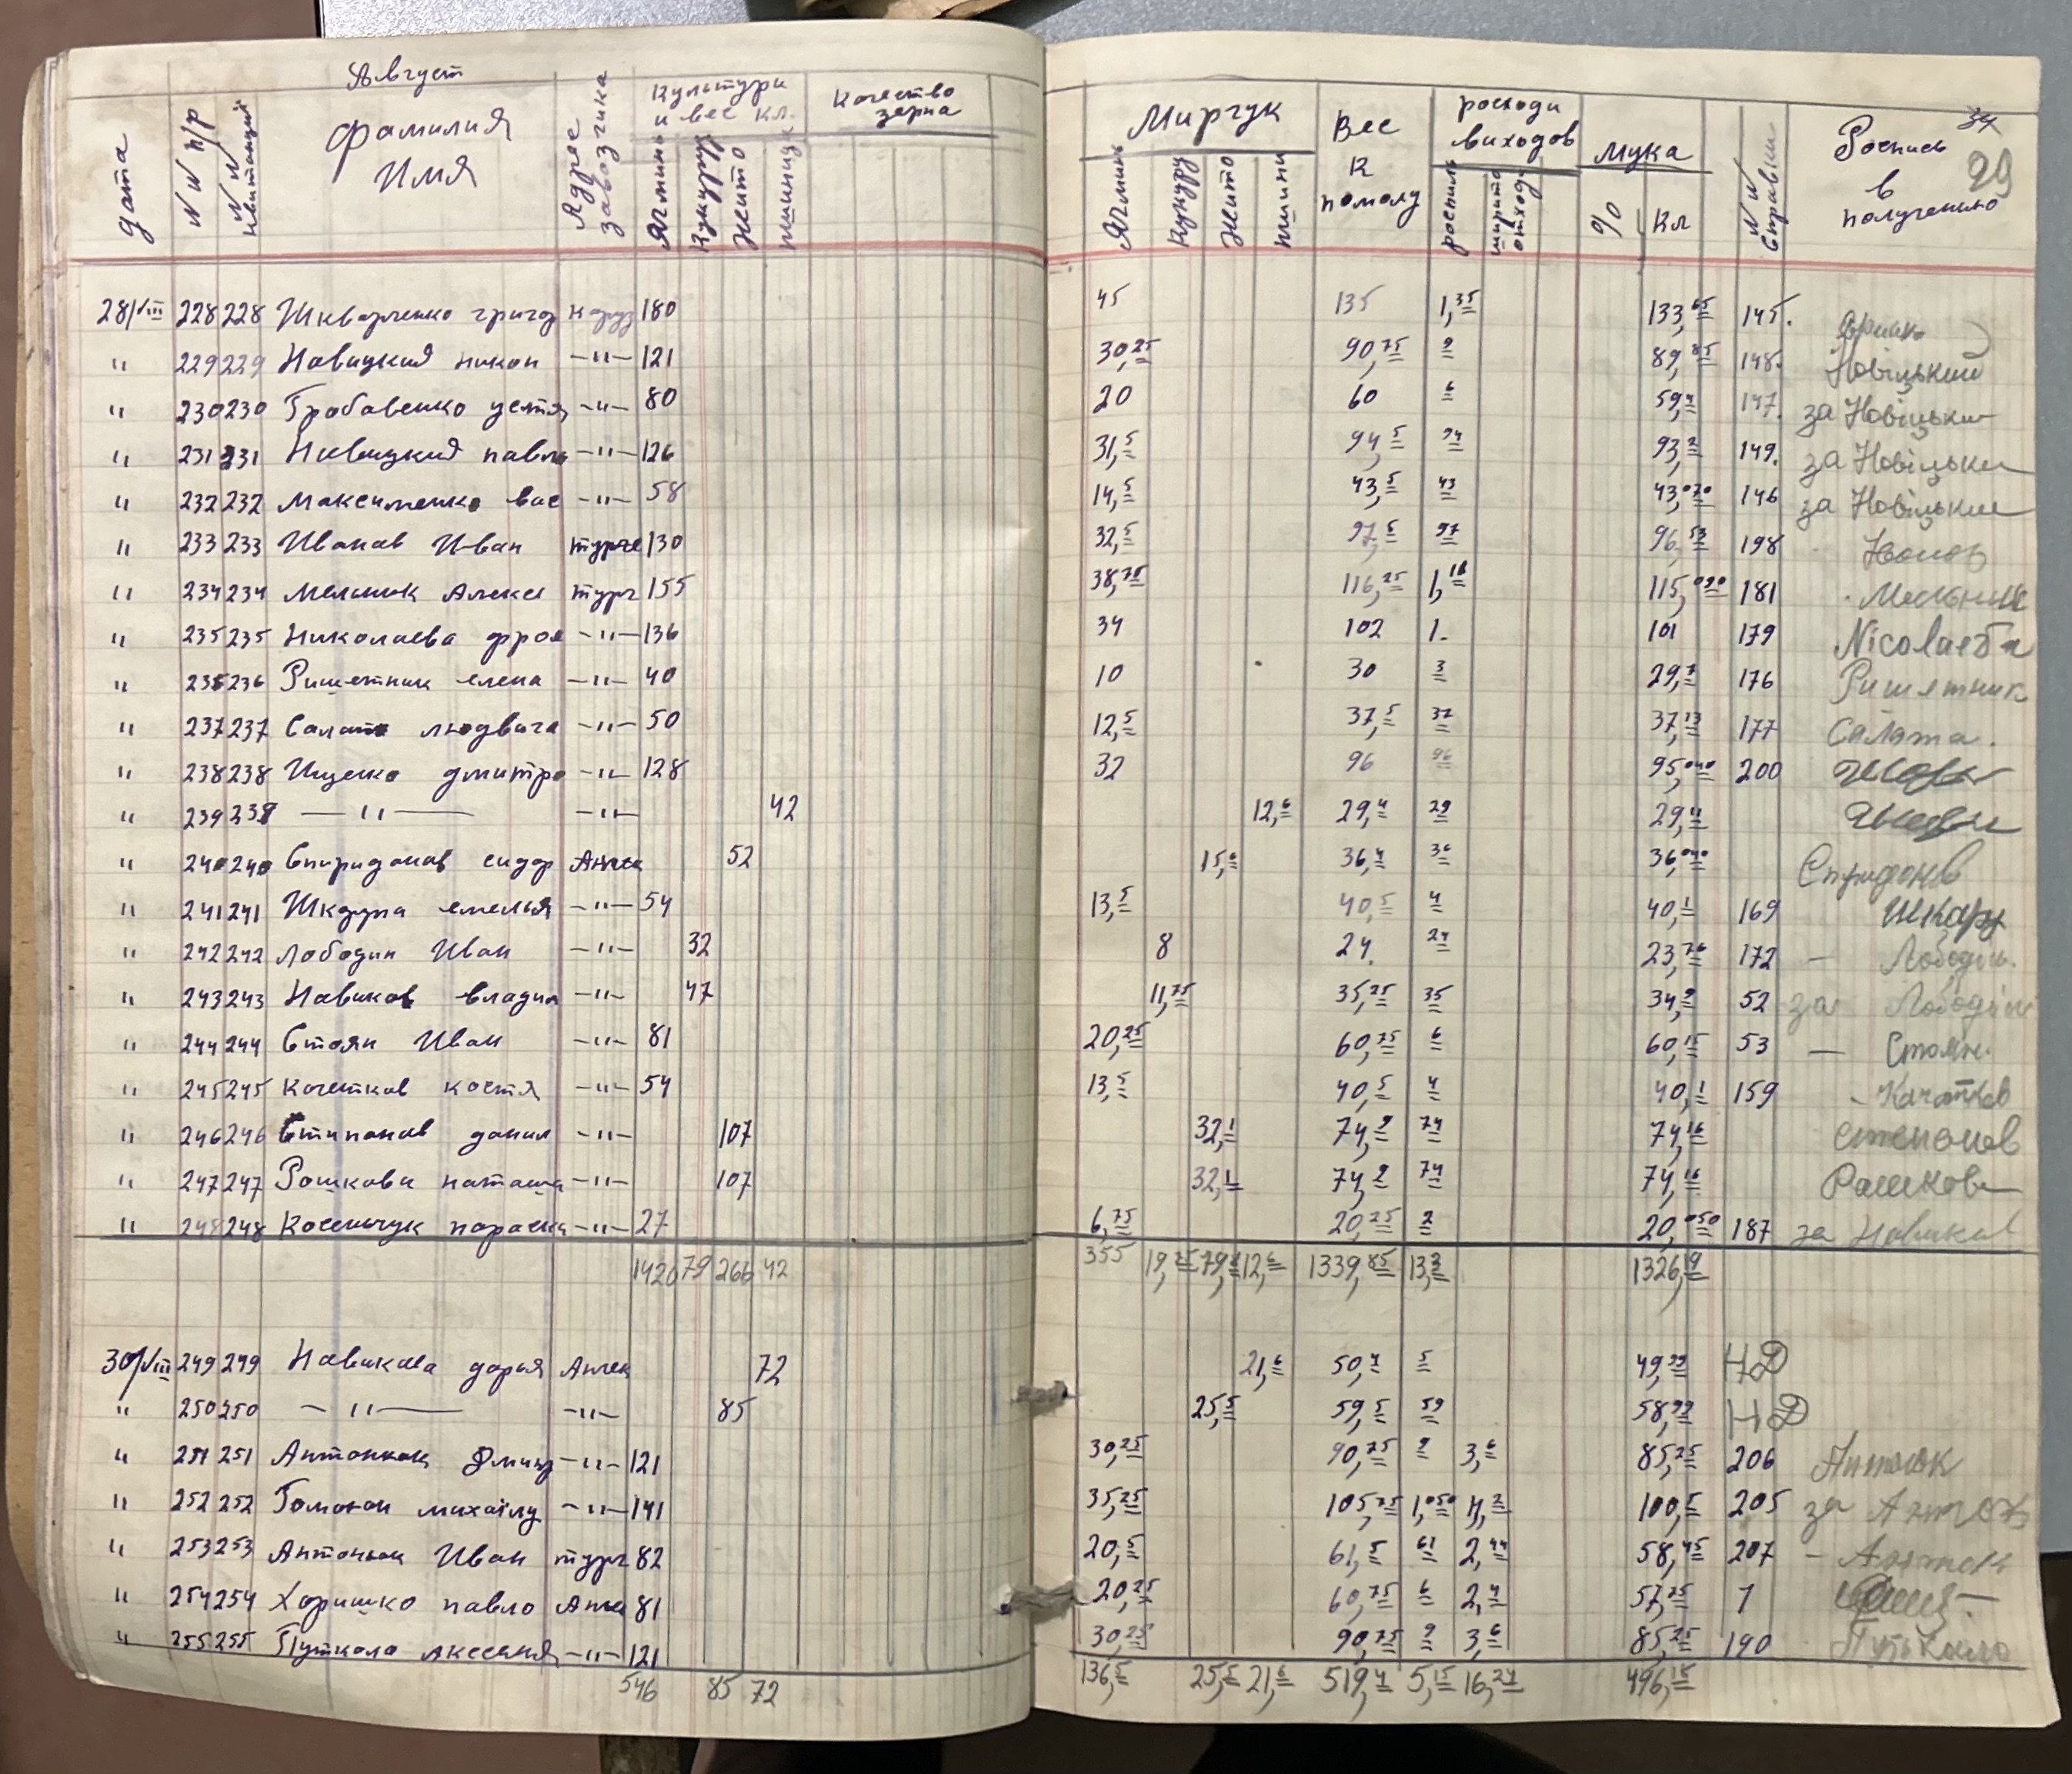 Август
дата N N п/р N N квитанций фамилия Имя Адрес завозчика Культури и вес кл. Ячминь Кукурузу Жито пшиница Кочество зерна Мирчук Ячмінь Кукурузу Жито пшини Вес к помолу росходи виходов роспиль мука % Кл N N Справки Роспись в полученню 34 29
28/VIII 228 228 Шкварленко григор 180 45 135 1,35 133,65 145.
" 229 229 Новицкий никон —"— 121 30,25 90,75 9 89,85 148. Новіцький
" 230 230 Грабовенко устя —"— 80 20 60 6 59,4 147. за Новіцьки
" 231 231 Новицкий павло —"— 126 31,5 94,5 94 93,2 149. за Новіцьки
" 232 232 Максименко вас —"— 58 14,5 43,5 43 43,070 146 за Новіцьки
" 233 233 Иванов Иван турче 130 32,5 97,5 97 96,53 198
" 234 234 Мельник Алексе турч 155 38,75 116,25 1,16 115,090 181 Мельник
" 235 235 Николаева фрос —"— 136 34 102 1. 101 179 Nicolaeва
" 236 236 Ришетник елена —"— 40 10 30 3 29,7 176 Ришетник
" 237 237 Салата людвига —"— 50 12,5 37,5 37 37,13 177 Салата.
" 238 238 Ищенко дмитро —"— 128 32 96 96 95,040 200
" 239 239 —"— —"— 42 12,6 29,4 29 29,11
" 240 240 Спиридонов сидор Анчек 52 15,6 36,4 36 36,040 Спиридонов
" 241 241 Шкарупа емелья —"— 54 13,5 40,5 4 40,1 169 Шкару
" 242 242 Лободин Иван —"— 32 8 24. 24 23,76 172 — Лободин.
" 243 243 Навиков владим —"— 47 11,75 35,25 35 34,9 52 за Лободин
" 244 244 Стоян Иван —"— 81 20,25 60,75 6 60,15 53 — Стоян.
" 245 245 Кочетков костя —"— 54 13,5 40,5 4 40,1 159 - Качатков
" 246 246 Стипанов данил —"— 107 32,1 74,9 74 74,16 Степонов
" 247 247 Рошкова наташа —"— 107 32,1 74,9 74 74,16 Рашкова
" 248 248 параска —"— 27 6,75 20,25 2 20,050 187 за Навиков
1420 79 266 42 355 19,75 79,8 12,6 1339,85 13,3 1326,19
30/VIII 249 249 Навикова дария Анчек 72 21,6 50,4 5 49,99 НД
" 250 250 —"— —"— 85 25,5 59,5 59 58,92 НД
" 251 251 —"— 121 30,25 90,75 9 3,6 85,25 206 Антонюк
" 252 252 Гомонон михаілу —"— 141 35,25 105,75 1,050 4,2 100,5 205 за
" 253 253 Антоньок Иван турч 82 20,5 61,5 61 2,44 58,45 207 -
" 254 254 Харишко павло Анче 81 20,25 60,75 6 2,4 57,75 7
" 255 255 Путкало аксения —"— 121 30,25 90,75 9 3,6 85,25 190 Путькало
546 85 72 136,5 25,5 21,6 519,4 5,15 16,24 496,15